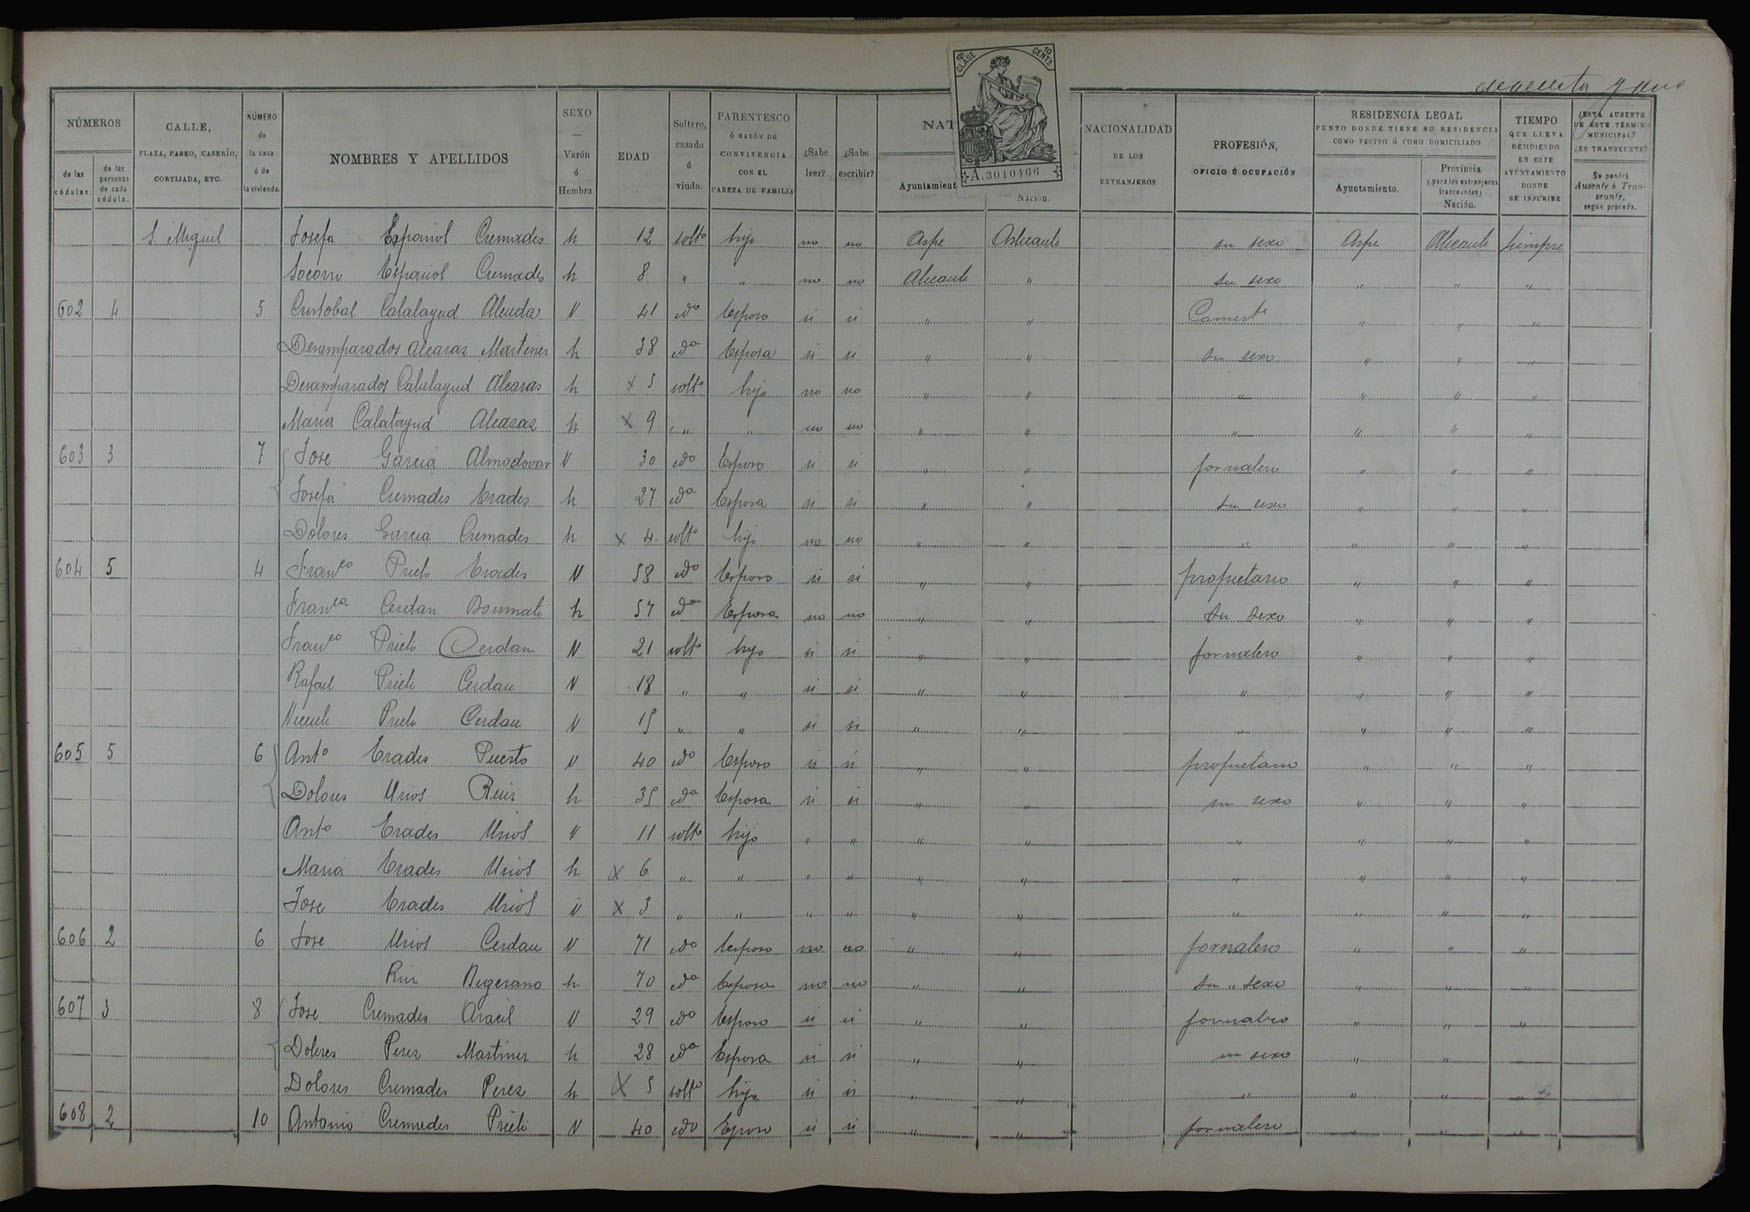 cuarenta y uno
18ª CLASE 10 CENTS
A.3010466
NÚMEROS
de las cédulas.
de las personas de cada cédula.
CALLE,
PLAZA, PASEO, CASERÍO,
CORTIJADA, ETC.
NÚMERO
de
la casa
ó de
la vivienda.
NOMBRES Y APELLIDOS
SEXO
—
Varón
ó
Hembra.
EDAD
Soltero,
casado
ó
viudo.
PARENTESCO
Ó RAZÓN DE
CONVIVENCIA
CON EL
CABEZA DE FAMILIA
¿Sabe leer?
¿Sabe escribir?
NAT
Ayuntamient
Nación.
NACIONALIDAD
DE LOS
EXTRANJEROS
PROFESIÓN,
OFICIO Ú OCUPACIÓN
RESIDENCIA LEGAL
PUNTO DONDE TIENE SU RESIDENCIA
COMO VECINO Ó COMO DOMICILIADO
Ayuntamiento.
Provincia
y para los extranjeros
transeuntes;
Nación.
TIEMPO
QUE LLEVA
RESIDIENDO
EN ESTE
AYUNTAMIENTO
DONDE
SE INSCRIBE
¿ESTÁ AUSENTE
DE ESTE TÉRMINO
MUNICIPAL?
¿ES TRANSEUNTE?
Se pondrá
Ausente ó Transeunte,
según proceda.
S. Miguel Josefa Español Cremades h 12 soltº hijo no no Aspe Alicante su sexo Aspe Alicante siempre
Socorro Español Cremades h 8 " " no no Alicante " su sexo " " "
602 4 5 Cristobal Calatayud Alenda V 41 cdº Esposo si si " " Comertº " " "
Desamparados Alcaraz Martinez h 38 cdª Esposa si si " " su sexo " " "
Desamparados Calatayud Alcaras h x 5 soltº hijo no no " " " " " "
Maria Calatayud Alcaraz h x 9 " " no no " " " " " "
603 3 7 Jose Garcia Almodovar V 30 cdº Esposo si si " " jornalero " " "
Josefa Cremades Erades h 27 cdª Esposa si si " " su sexo " " "
Dolores Garcia Cremades h x 4 soltº hijo no no " " " " " "
604 5 4 Franco Prieto Erades V 58 cdº Esposo si si " " propietario " " "
Franca Cerdan Bonmati h 57 cdª Esposa no no " " su sexo " " "
Franco Prieto Cerdan V 21 soltº hijo si si " " jornalero " " "
Rafael Prieto Cerdan V 18 " " si si " " " " " "
Vicente Prieto Cerdan V 15 " " si si " " " " " "
605 5 6 Antº Erades Puerto V 40 cdº Esposo si si " " propietario " " "
Dolores Urios Ruiz h 35 cdª Esposa si si " " su sexo " " "
Antº Erades Uriol V 11 soltº hijo " " " " " " " "
Maria Erades Uriol h x 6 " " " " " " " " " "
Jose Erades Uriol V x 3 " " " " " " " " " "
606 2 6 Jose Uriol Cerdan V 71 cdº Esposo no no " " jornalero " " "
Ruiz Begerano h 70 cdª Esposa no no " " su " sexo " " "
607 3 8 Jose Cremades Aracil V 29 cdº Esposo si si " " jornalero " " "
Dolores Perez Martinez h 28 cdª Esposa si si " " su sexo " " "
Dolores Cremades Perez h x 5 soltº hija si si " " " " " "
608 2 10 Antonio Cremades Prieto V 40 cdº Esposo si si " " jornalero " " "